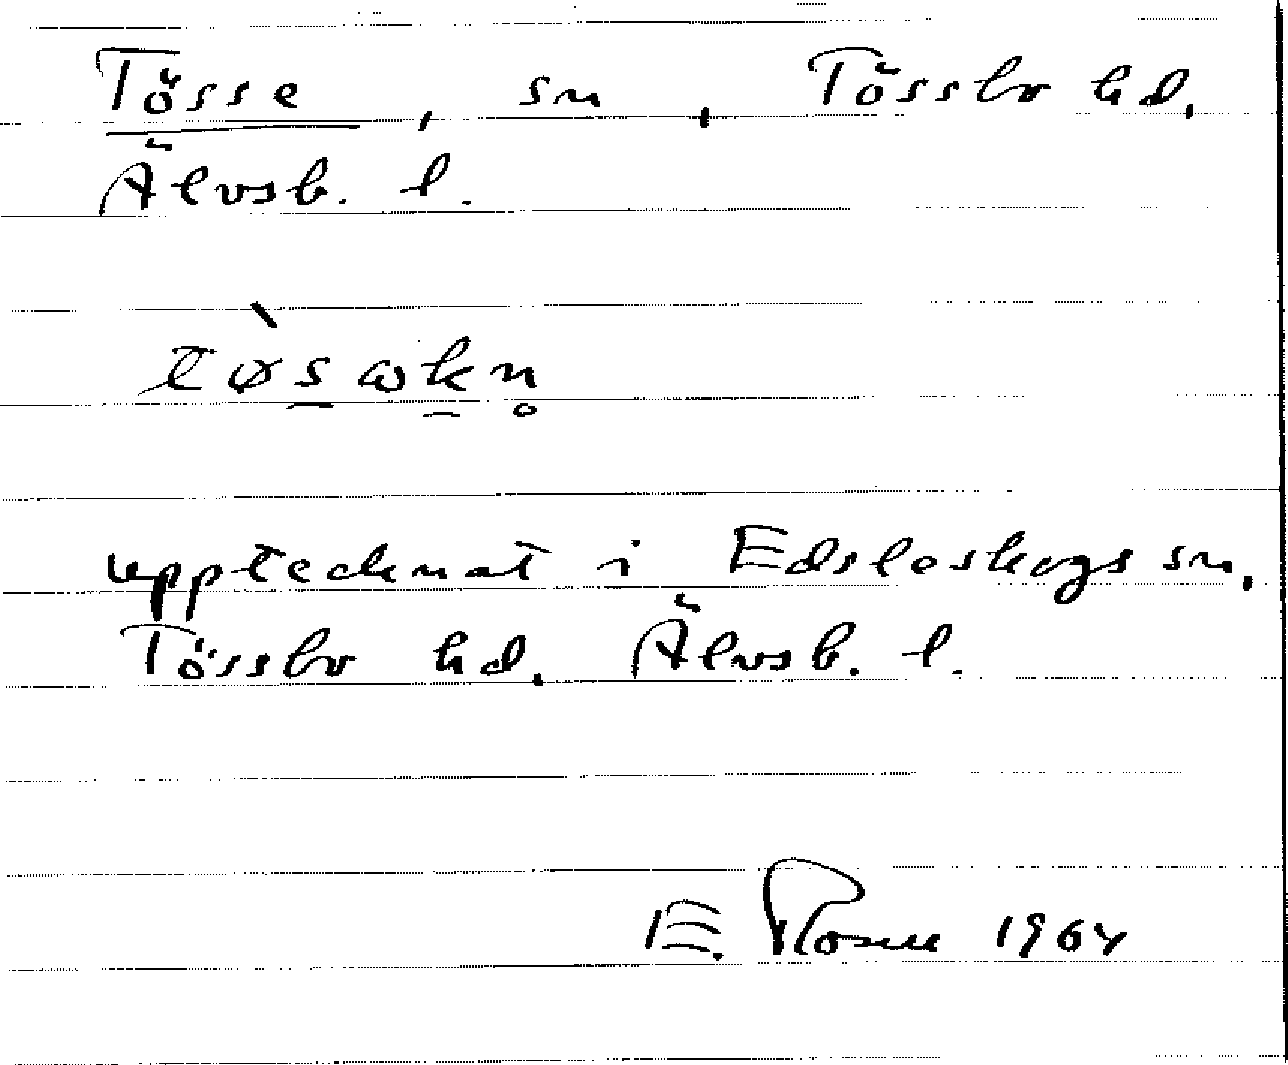 Tösse, sn, Tössbo hd.
Älvsb. l.
tø̀s̠ωk̠n̥
upptecknat i Edsleskogs sn,
Tössbo hd. Älvsb. l.
E. Rosen 1964